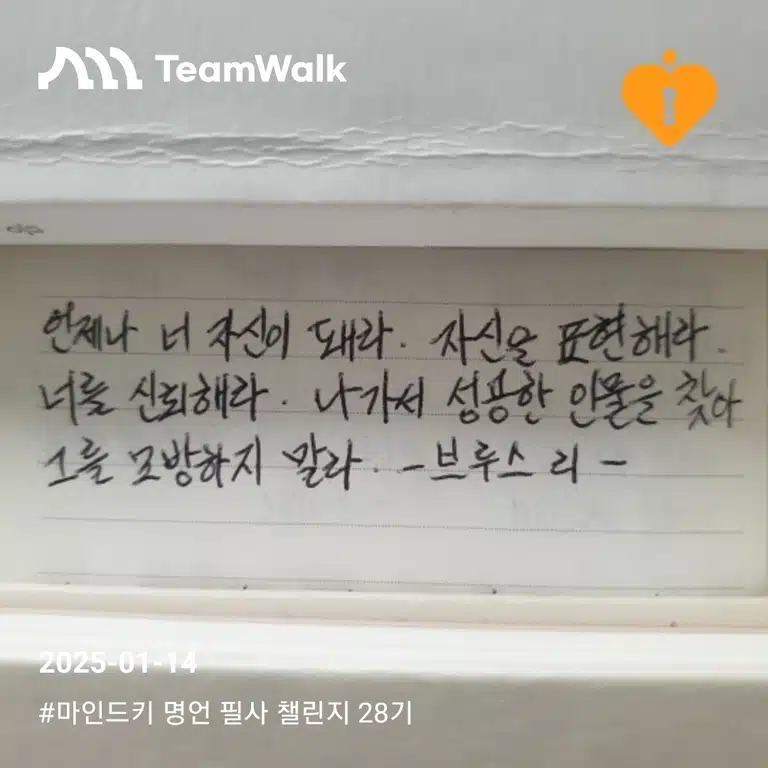 TeamWalk
언제나 너 자신이 돼라. 자신을 표현해라.
너를 신뢰해라. 나가서 성공한 인물을 찾아
그를 모방하지 말라. -브루스 리 -
2025-01-14
#마인드키 명언 필사 챌린지 28기